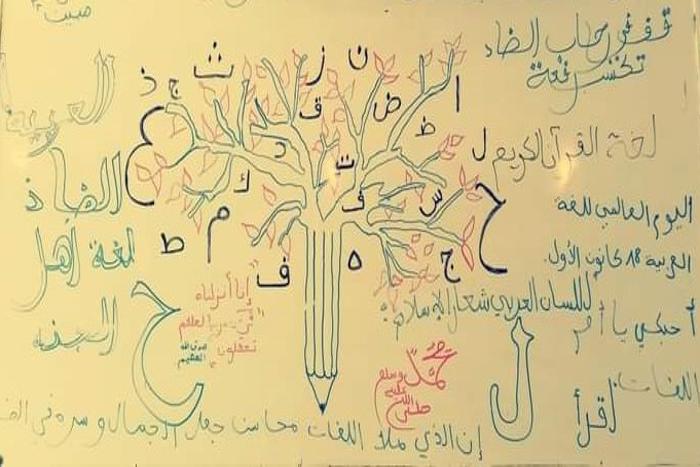 صبت
قف في رحاب الضاد
تكسب رفعة
لغة القرآن الكريم
اليوم العالمي للغة
العربية 18 كانون الأول.
اللسان العربي شعار الإسلام
أحبكي يا أم
اللغات
اقرأ
العربية
الضاد
لغة أهل
ث
ن
ز
ج
ذ
ق
ض
ا
ظ
ع
د
ت
ل
ك
ف
س
ح
م
ط
ف
ه
ج
ح
ل
"إنا أنزلناه
تعقلون"
صدق الله
العظيم
محمد
صلى
الله
عليه
وسلم
إن الذي ملأ اللغات محاسن جعل الجمال وسره في الض